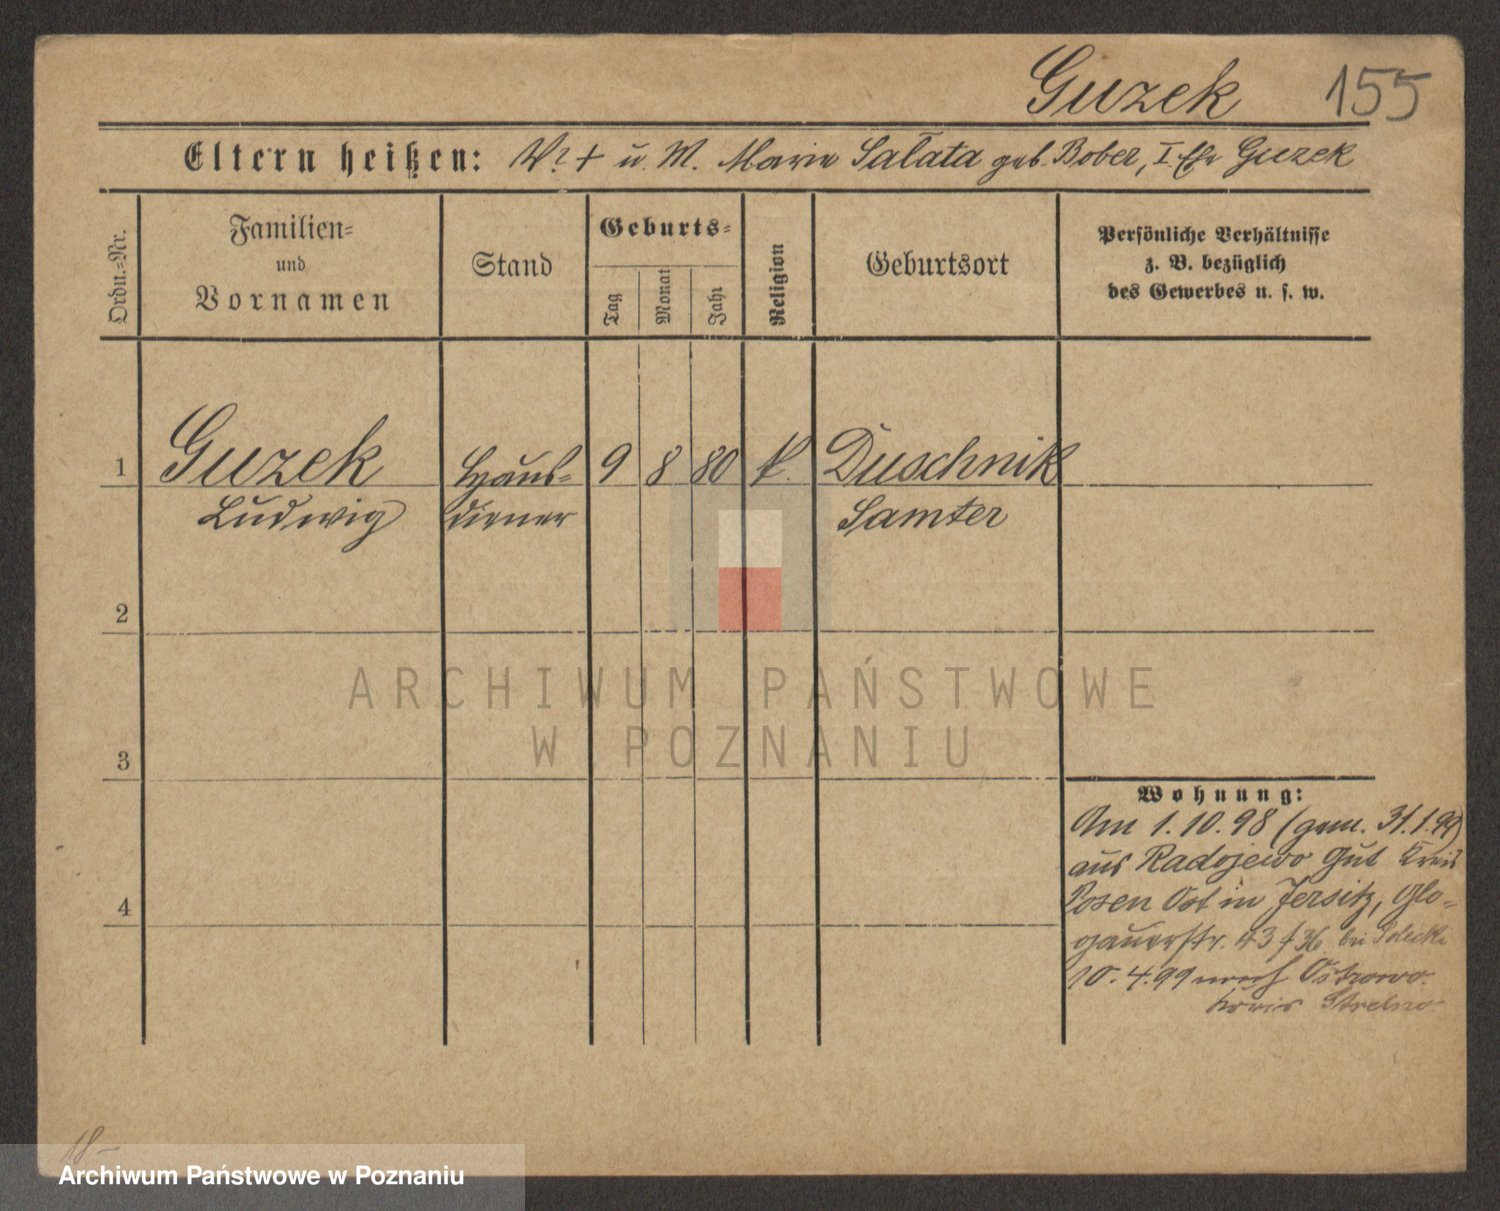 Guzek 155
Eltern heißen: V. † u. M. Marie Sałata geb. Bober, I. Ehe Guzek
Ordn.-Nr.
Familien-
und
Vornamen
Stand
Geburts-
Tag
Monat
Jahr
Religion
Geburtsort
Persönliche Verhältnisse
z. B. bezüglich
des Gewerbes u. s. w.
1 Guzek Haus- 9 8 80 k. Duschnik
Ludwig diener Samter
2
3
4
Wohnung:
Am 1.10.98 (gem. 31.1.99)
aus Radojewo Gut Kreis
Posen Ost in Jersitz, Glo-
gauerstr. 43 bei
10.4.99 nach Ostrowo
Kreis Strelno
18-
ARCHIWUM PAŃSTWOWE
W POZNANIU
Archiwum Państwowe w Poznaniu